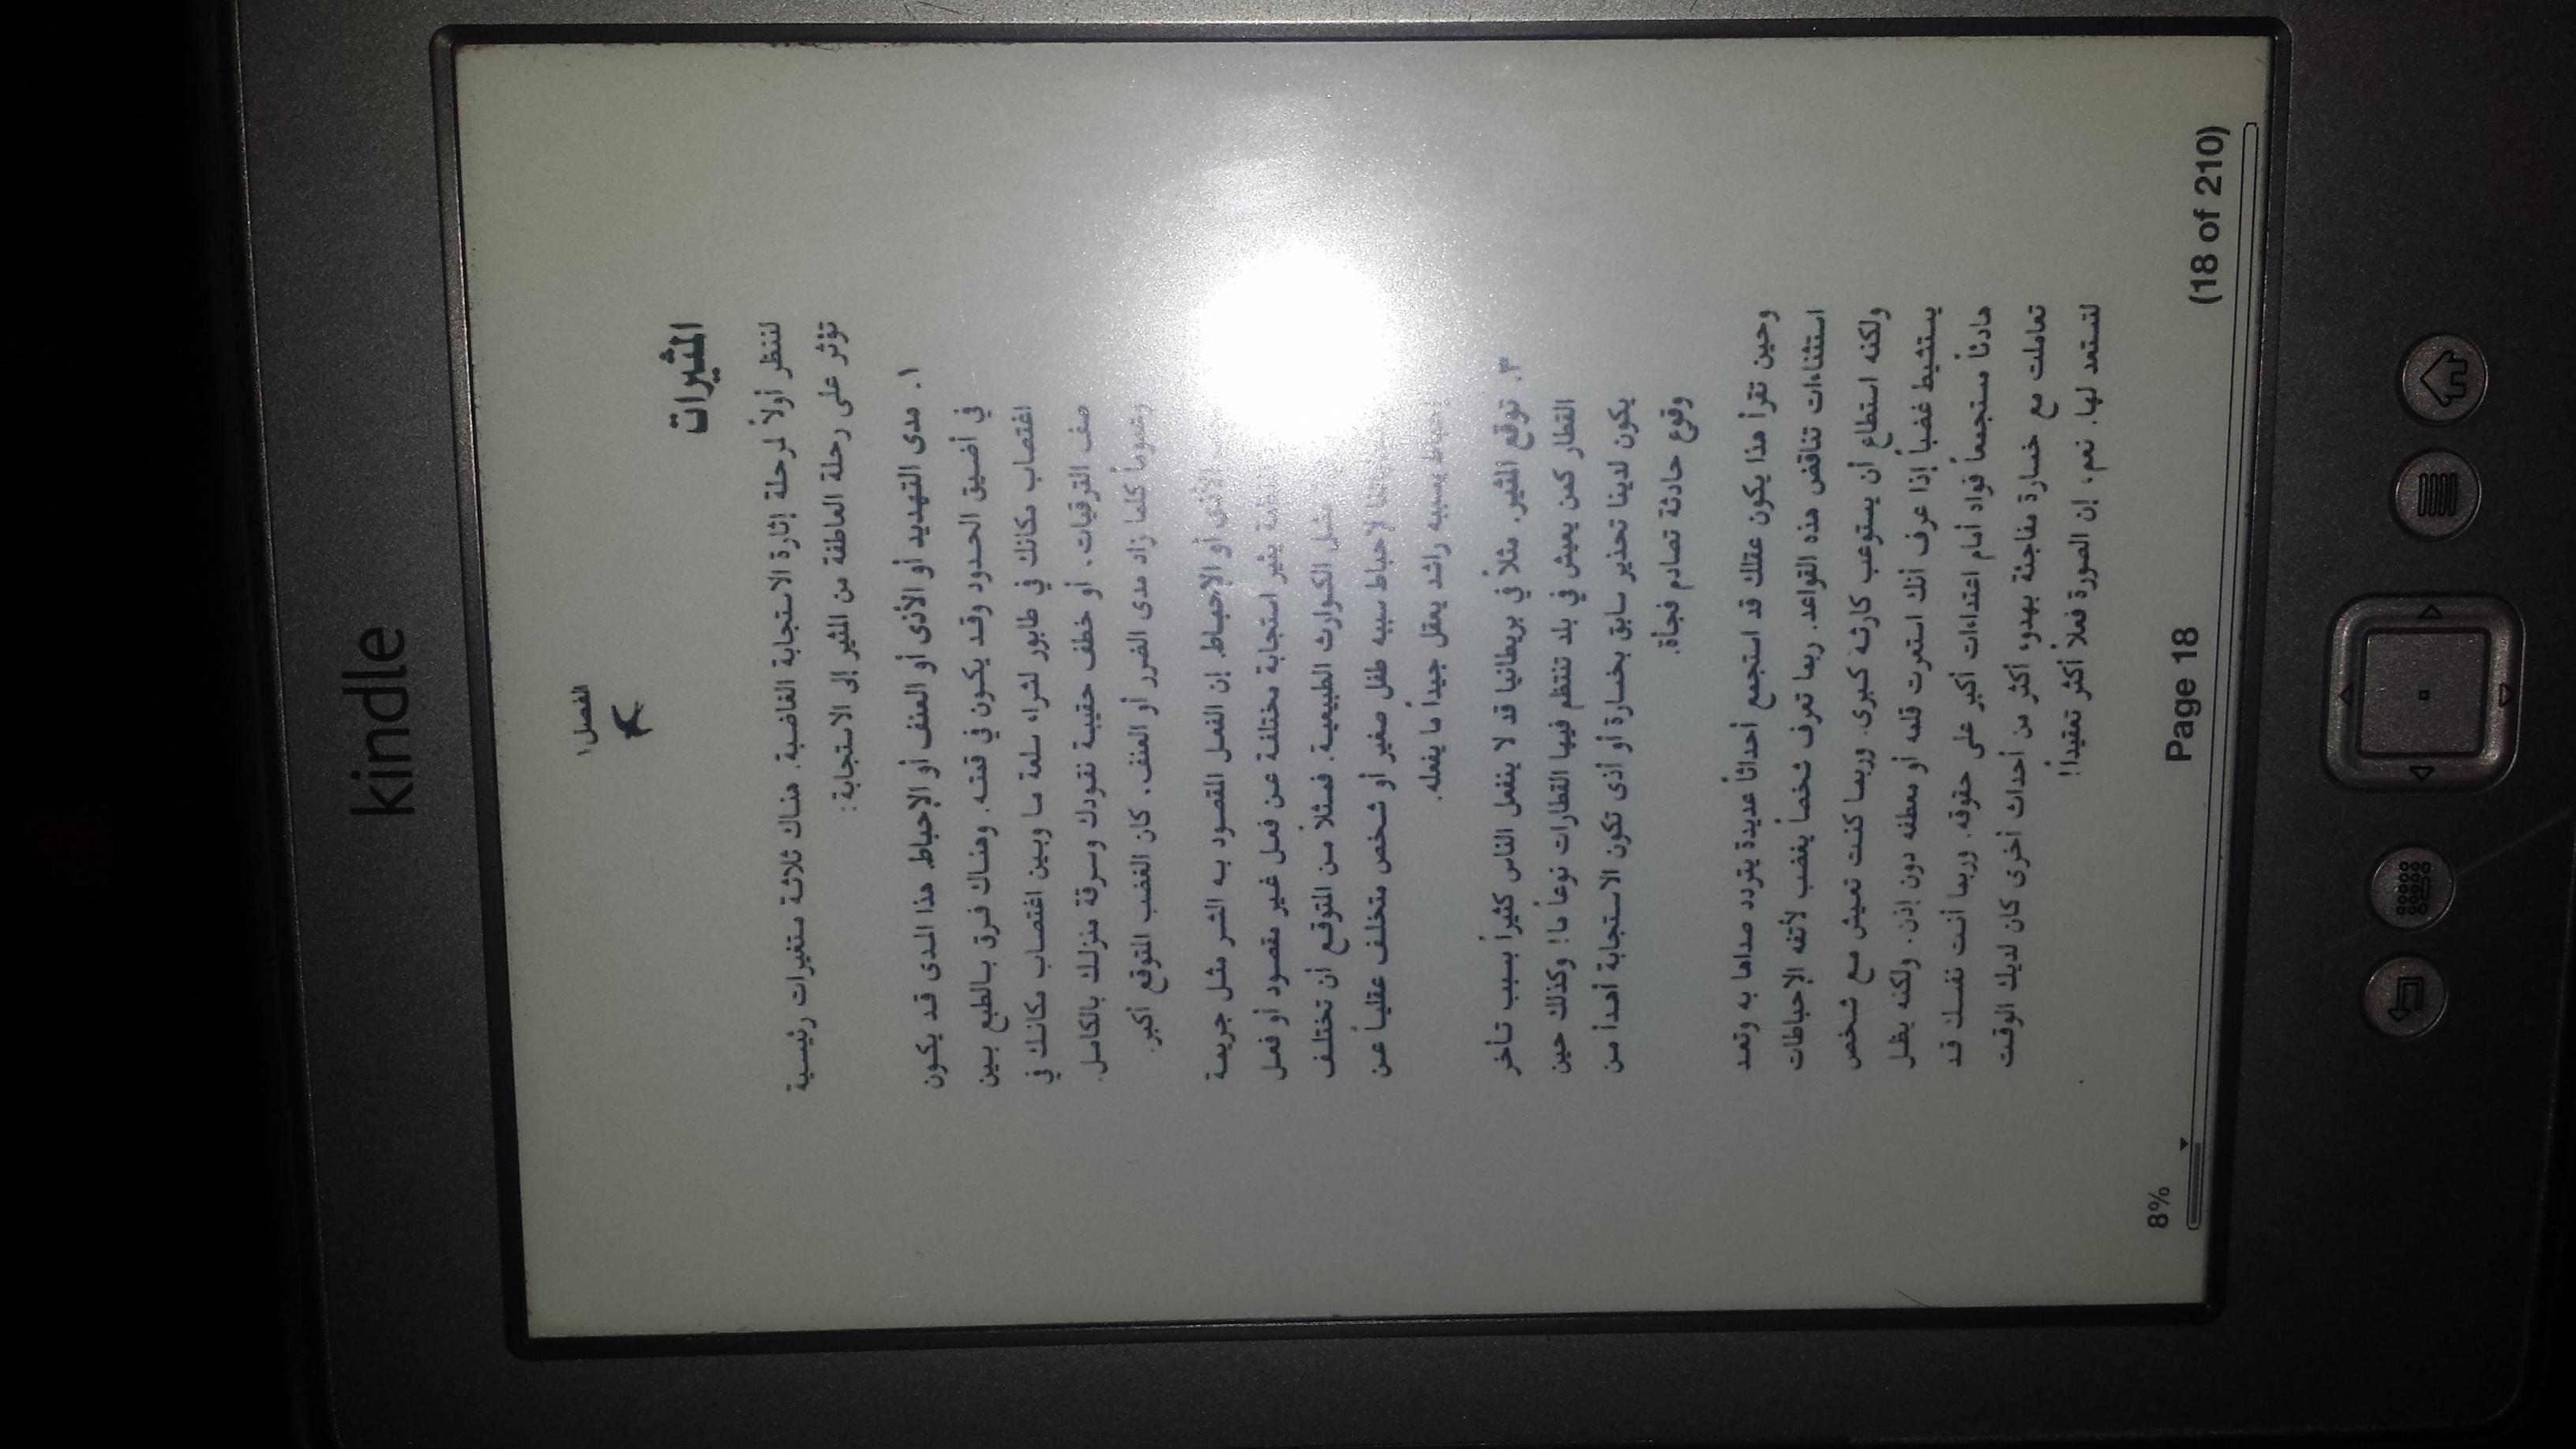 kindle
الفصل ١
المثيرات
لننظر أولاً لمرحلة إثارة الاستجابة الغاضبة. هناك ثلاثة متغيرات رئيسية
تؤثر على رحلة العاطفة من المثير إلى الاستجابة:
١. مدى التهديد أو الأذى أو العنف أو الإحباط. هذا المدى قد يكون
في أضيق الحدود وقد يكون في قمته. وهناك فرق بالطبع بين
اغتصاب مكانك في طابور لشراء سلعة ما وبين اغتصاب مكانك في
صف الترقيات. أو خطف حقيبة نقودك وسرقة منزلك بالكامل.
وعموماً كلما زاد مدى الضرر أو العنف، كان الغضب المتوقع أكبر.
الأذى أو الإحباط. إن الفعل المقصود به الشر مثل جريمة
يثير استجابة مختلفة عن فعل غير مقصود أو فعل
مثل الكوارث الطبيعية. فمثلاً من المتوقع أن تختلف
لإحباط سببه طفل صغير أو شخص متخلف عقلياً عن
إحباط يسببه راشد يعقل جيداً ما يفعله.
٣. توقع المثير. مثلاً في بريطانيا قد لا ينفعل الناس كثيراً بسبب تأخر
القطار كمن يعيش في بلد تنتظم فيها القطارات نوعاً ما! وكذلك حين
يكون لدينا تحذير سابق بخسارة أو أذى تكون الاستجابة أهدأ من
وقوع حادثة تصادم فجأة.
وحين تقرأ هذا يكون عقلك قد استجمع أحداثاً عديدة يتردد صداها به وتعد
استثناءات تناقض هذه القواعد. ربما تعرف شخصاً يغضب لأتفه الإحباطات
ولكنه استطاع أن يستوعب كارثة كبرى. وربما كنت تعيش مع شخص
يستشيط غضباً إذا عرف أنك استعرت قلمه أو معطفه دون إذن. ولكنه يظل
هادئاً مستجمعاً فؤاده أمام اعتداءات أكبر على حقوقه. وربما أنت نفسك قد
تعاملت مع خسارة مفاجئة بهدوء أكثر من أحداث أخرى كان لديك الوقت
لتستعد لها. نعم، إن الصورة فعلاً أكثر تعقيداً!
8% Page 18 (18 of 210)